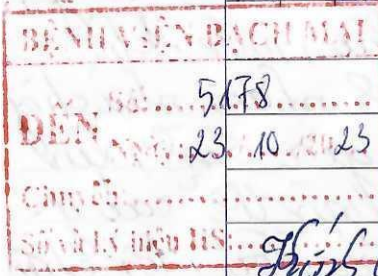 BỆNH VIỆN BẠCH MAI
ĐẾN Số: 5178
Ngày: 23 10/2023
Chuyển:
Số và ký hiệu HS: